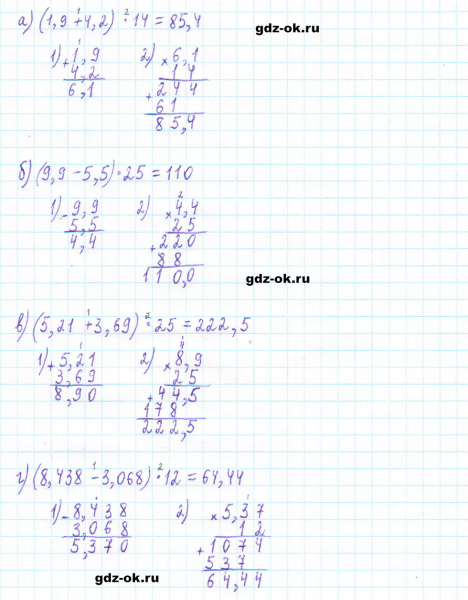 а) (1,9 + 4,2) · 14 = 85,4
gdz-ok.ru
1) + 1,9
4,2
6,1
2) × 6,1
1 4
+ 2 4 4
6 1
8 5,4
б) (9,9 - 5,5) · 25 = 110
1) - 9,9
5,5
4,4
2) × 4,4
2 5
+ 2 2 0
8 8
1 1 0,0
gdz-ok.ru
в) (5,21 + 3,69) · 25 = 222,5
1) + 5,21
3,69
8,90
2) × 8,9
2 5
+ 4 4,5
1 7 8
2 2 2,5
г) (8,438 - 3,068) · 12 = 64,44
1) - 8,438
3,068
5,370
2) × 5,37
1 2
+ 1 0 7 4
5 3 7
6 4,4 4
gdz-ok.ru
gdz-ok.ru